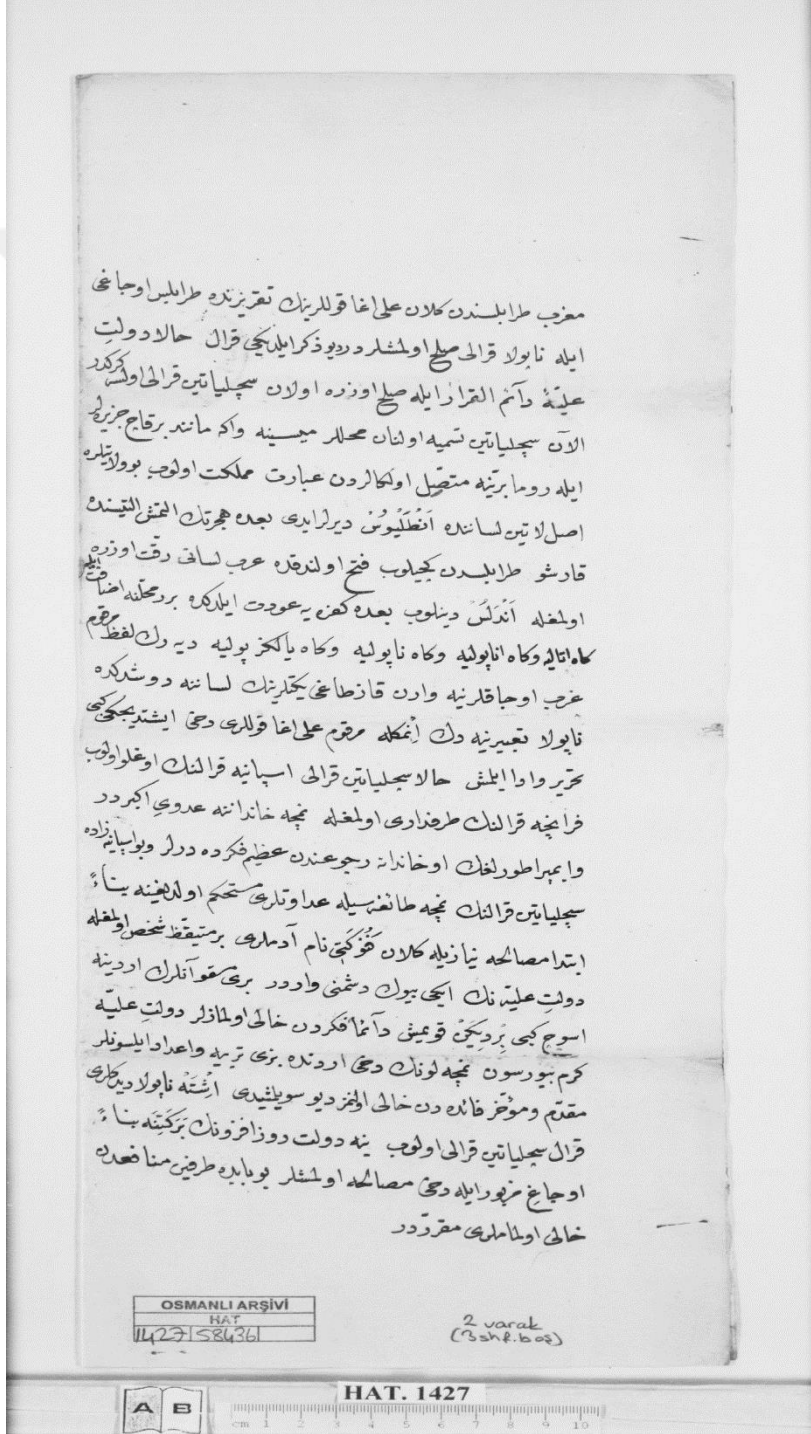 مغرب طرابلسندن كلان على اغا قوللرينك تقريرنده طرابلس اوجاغى
ايله ناپولا قرالى صلح اولمشلردر ديو ذكر ايلديكى قرال حالا دولت
عليّۀ دآئم القرار ايله صلح اوزره اولان سچليا‌تين قرالى اولسه كركدر
الآن سچلياتين تسميه اولنان محللر ميسينه واكا مانند برقاچ جزيره‌لر
ايله روما بريّنه متّصل اولكالردن عبارت مملكت اولوب بو ولايتلره
اصل لاتين لساننده ديرلر ايدى بعده هجرتك التمش التيسنده
قارشو طرابلسدن كچيلوب فتح اولندقده عرب لسانى دقّت اوزره
اولمغله اَندَلُسْ دينلوب بعده كفره يه عودت ايلدكده بر محلّنه اضافت ايله
كاه اناليه وكاه اناپوليه وكاه ناپوليه وكاه يالكز پوليه ديه رك لفظ مرقوم
غرب اوجاقلرينه وارن قازطاغى يكتلرينك لساننه دوشدكده
ناپولا تعبيرينه دك اِنمكله مرقوم على اغا قوللرى دخى ايشتديكى كبى
تحرير وادا ايلمش حالا سچلياتين قرالى اسپانيه قرالنك اوغلو اولوب
فرانچه قرالنك طرفدارى اولمغله نمچه خاندانه عدوى اكبردر
وايمپراطورلغك او خاندانه رجوعندن عظيم فكرده درلر وبو اسپانيه زاده
سچلياتين قرالنك نمچه طائفه سيله عداوتلرى مستحكم اولديغنه بناءً
ابتدا مصالحه نيازيله كلان نام آدملرى بر متيقّظ شخص اولمغله
دولت عليّه نك ايكى بيوك دشمنى واردر برى مسقو آنلرك اردينه
اسوج كبى قويمش دآئما فكردن خالى اولمازلر دولت عليّه
كرم بيورسون نمچه لونك دخى اردنده بزى تربيه واعداد ايلسونلر
مقدّم ومؤخّر فائده دن خالى اولنمز ديو سويلشيدى اِشْتَه ناپولا ديدكلرى
قرال سچلياتين قرالى اولوب ينه دولت روز افزونك بَرَكَتنه بناءً
اوجاغ مزبور ايله دخى مصالحه اولمشلر بو بابده طرفين منافعدن
خالى اولماملرى مقرّردر
OSMANLI ARŞİVİ
HAT
1427 | 58436
2 varak
(3 shf. boş)
HAT. 1427
A B
cm 1 2 3 4 5 6 7 8 9 10